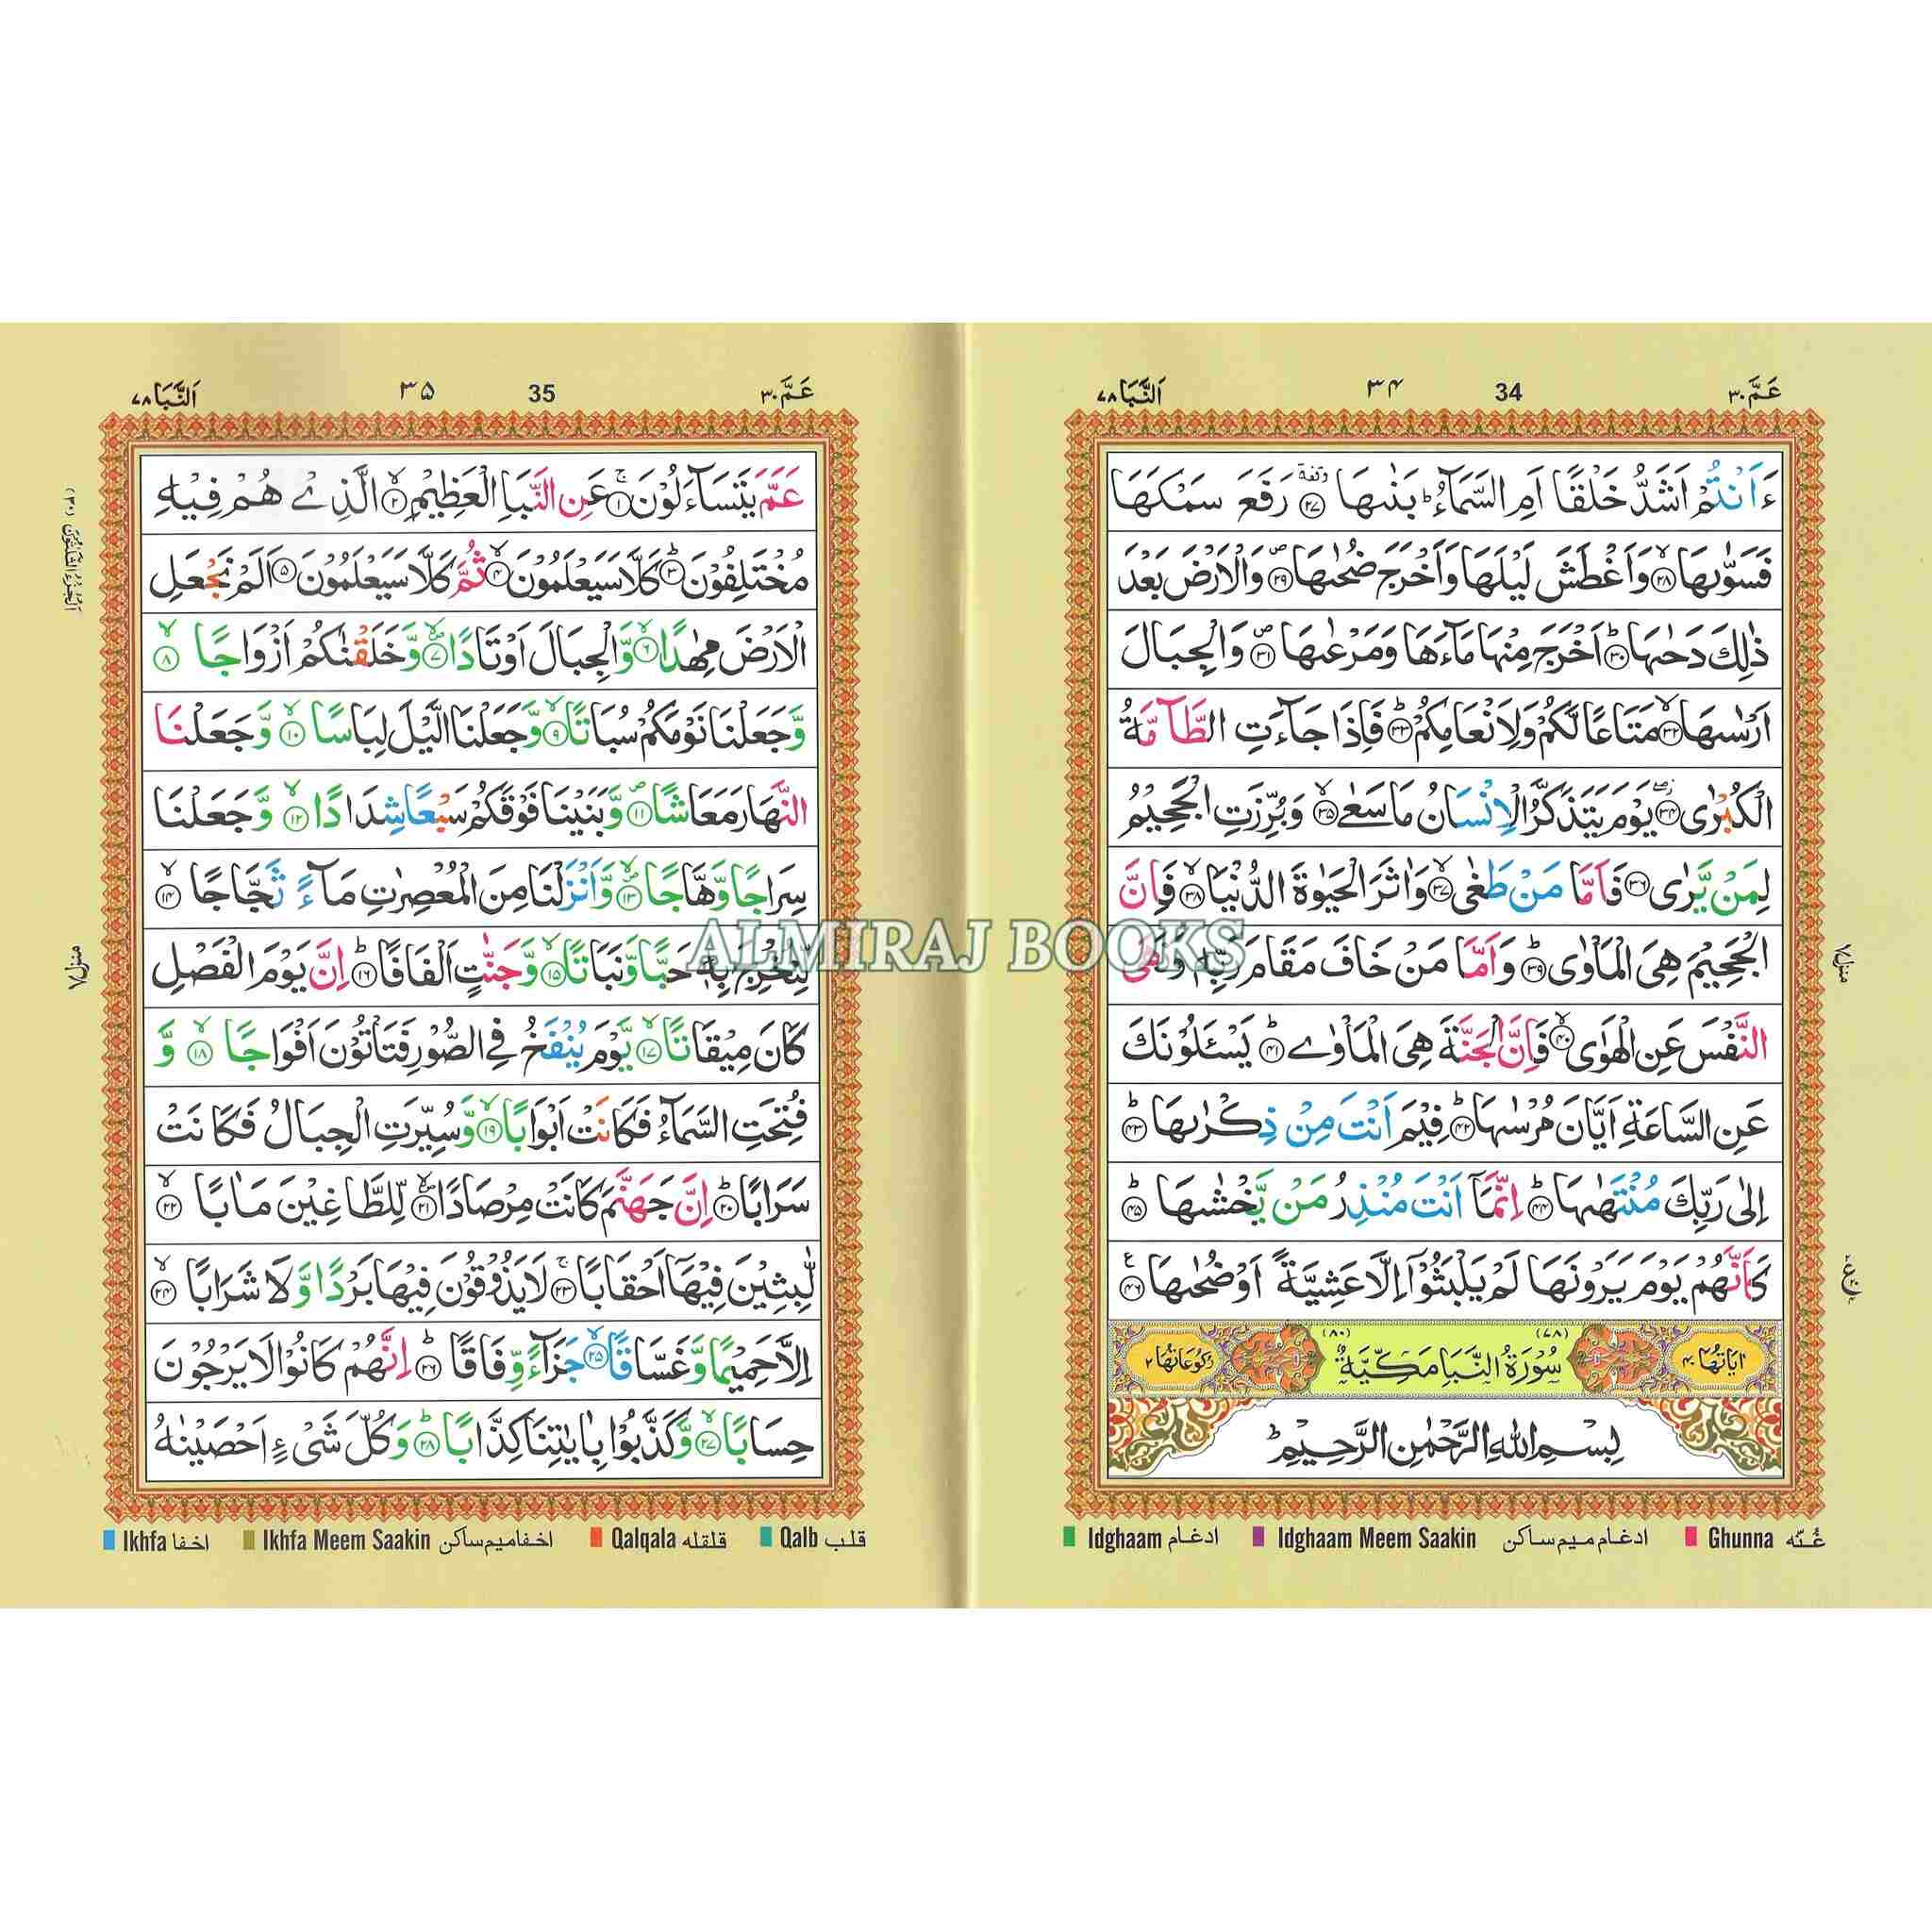 اَلنَّبَا ٧٨ ٣٤ 34 عَمَّ ٣٠
ءَاَنْتُمْ اَشَدُّ خَلْقًا اَمِ السَّمَآءُ ؕ بَنٰىهَا ۥوقفة ﴿٢٧﴾ رَفَعَ سَمْكَهَا
فَسَوّٰىهَا ۙ﴿٢٨﴾ وَاَغْطَشَ لَيْلَهَا وَاَخْرَجَ ضُحٰىهَا ۪﴿٢٩﴾ وَالْاَرْضَ بَعْدَ
ذٰلِكَ دَحٰىهَا ؕ﴿٣٠﴾ اَخْرَجَ مِنْهَا مَآءَهَا وَمَرْعٰىهَا ۪﴿٣١﴾ وَالْجِبَالَ
اَرْسٰىهَا ۙ﴿٣٢﴾ مَتَاعًا لَّكُمْ وَلِاَنْعَامِكُمْ ؕ﴿٣٣﴾ فَاِذَا جَآءَتِ الطَّآمَّةُ
الْكُبْرٰى ۖ﴿٣٤﴾ يَوْمَ يَتَذَكَّرُ الْاِنْسَانُ مَا سَعٰى ۙ﴿٣٥﴾ وَبُرِّزَتِ الْجَحِيْمُ
لِمَنْ يَّرٰى ﴿٣٦﴾ فَاَمَّا مَنْ طَغٰى ۙ﴿٣٧﴾ وَاٰثَرَ الْحَيٰوةَ الدُّنْيَا ۙ﴿٣٨﴾ فَاِنَّ
الْجَحِيْمَ هِىَ الْمَاْوٰى ؕ﴿٣٩﴾ وَاَمَّا مَنْ خَافَ مَقَامَ رَبِّهٖ وَنَهَى
النَّفْسَ عَنِ الْهَوٰى ۙ﴿٤٠﴾ فَاِنَّ الْجَنَّةَ هِىَ الْمَاْوٰى ؕ﴿٤١﴾ يَسْـَٔلُوْنَكَ
عَنِ السَّاعَةِ اَيَّانَ مُرْسٰىهَا ؕ﴿٤٢﴾ فِيْمَ اَنْتَ مِنْ ذِكْرٰىهَا ؕ﴿٤٣﴾
اِلٰى رَبِّكَ مُنْتَهٰىهَا ؕ﴿٤٤﴾ اِنَّمَآ اَنْتَ مُنْذِرُ مَنْ يَّخْشٰىهَا ؕ﴿٤٥﴾
كَاَنَّهُمْ يَوْمَ يَرَوْنَهَا لَمْ يَلْبَثُوْٓا اِلَّا عَشِيَّةً اَوْ ضُحٰىهَا ع﴿٤٦﴾
اٰيَاتُهَا ٤٠ (٧٨) سُوْرَةُ النَّبَاِ مَكِّيَّةٌ (٨٠) رُكُوْعَاتُهَا ٢
بِسْمِ اللّٰهِ الرَّحْمٰنِ الرَّحِيْمِ
منزل ٧
Idghaam ادغام Idghaam Meem Saakin ادغام ميم ساكن Ghunna غُنّه
اَلنَّبَا ٧٨ ٣٥ 35 عَمَّ ٣٠
عَمَّ يَتَسَآءَلُوْنَ ۚ﴿١﴾ عَنِ النَّبَاِ الْعَظِيْمِ ۙ﴿٢﴾ الَّذِىْ هُمْ فِيْهِ
مُخْتَلِفُوْنَ ؕ﴿٣﴾ كَلَّا سَيَعْلَمُوْنَ ۙ﴿٤﴾ ثُمَّ كَلَّا سَيَعْلَمُوْنَ ﴿٥﴾ اَلَمْ نَجْعَلِ
الْاَرْضَ مِهٰدًا ۙ﴿٦﴾ وَّالْجِبَالَ اَوْتَادًا ۪﴿٧﴾ وَّخَلَقْنٰكُمْ اَزْوَاجًا ۙ﴿٨﴾
وَّجَعَلْنَا نَوْمَكُمْ سُبَاتًا ۙ﴿٩﴾ وَّجَعَلْنَا الَّيْلَ لِبَاسًا ۙ﴿١٠﴾ وَّجَعَلْنَا
النَّهَارَ مَعَاشًا ۪﴿١١﴾ وَّبَنَيْنَا فَوْقَكُمْ سَبْعًا شِدَادًا ۙ﴿١٢﴾ وَّجَعَلْنَا
سِرَاجًا وَّهَّاجًا ۪﴿١٣﴾ وَّاَنْزَلْنَا مِنَ الْمُعْصِرٰتِ مَآءً ثَجَّاجًا ۙ﴿١٤﴾
لِّنُخْرِجَ بِهٖ حَبًّا وَّنَبَاتًا ۙ﴿١٥﴾ وَّجَنّٰتٍ اَلْفَافًا ؕ﴿١٦﴾ اِنَّ يَوْمَ الْفَصْلِ
كَانَ مِيْقَاتًا ۙ﴿١٧﴾ يَّوْمَ يُنْفَخُ فِى الصُّوْرِ فَتَاْتُوْنَ اَفْوَاجًا ۙ﴿١٨﴾ وَّ
فُتِحَتِ السَّمَآءُ فَكَانَتْ اَبْوَابًا ۙ﴿١٩﴾ وَّسُيِّرَتِ الْجِبَالُ فَكَانَتْ
سَرَابًا ؕ﴿٢٠﴾ اِنَّ جَهَنَّمَ كَانَتْ مِرْصَادًا ۪﴿٢١﴾ لِّلطَّاغِيْنَ مَاٰبًا ۙ﴿٢٢﴾
لّٰبِثِيْنَ فِيْهَآ اَحْقَابًا ۚ﴿٢٣﴾ لَا يَذُوْقُوْنَ فِيْهَا بَرْدًا وَّلَا شَرَابًا ۙ﴿٢٤﴾
اِلَّا حَمِيْمًا وَّغَسَّاقًا ۙ﴿٢٥﴾ جَزَآءً وِّفَاقًا ؕ﴿٢٦﴾ اِنَّهُمْ كَانُوْا لَا يَرْجُوْنَ
حِسَابًا ۙ﴿٢٧﴾ وَّكَذَّبُوْا بِاٰيٰتِنَا كِذَّابًا ؕ﴿٢٨﴾ وَكُلَّ شَىْءٍ اَحْصَيْنٰهُ
اَلْجُزْءُ الثَّلٰثُوْنَ (٣٠)
منزل ٧
Ikhfa اخفا Ikhfa Meem Saakin اخفا ميم ساكن Qalqala قلقله Qalb قلب
ALMIRAJ BOOKS